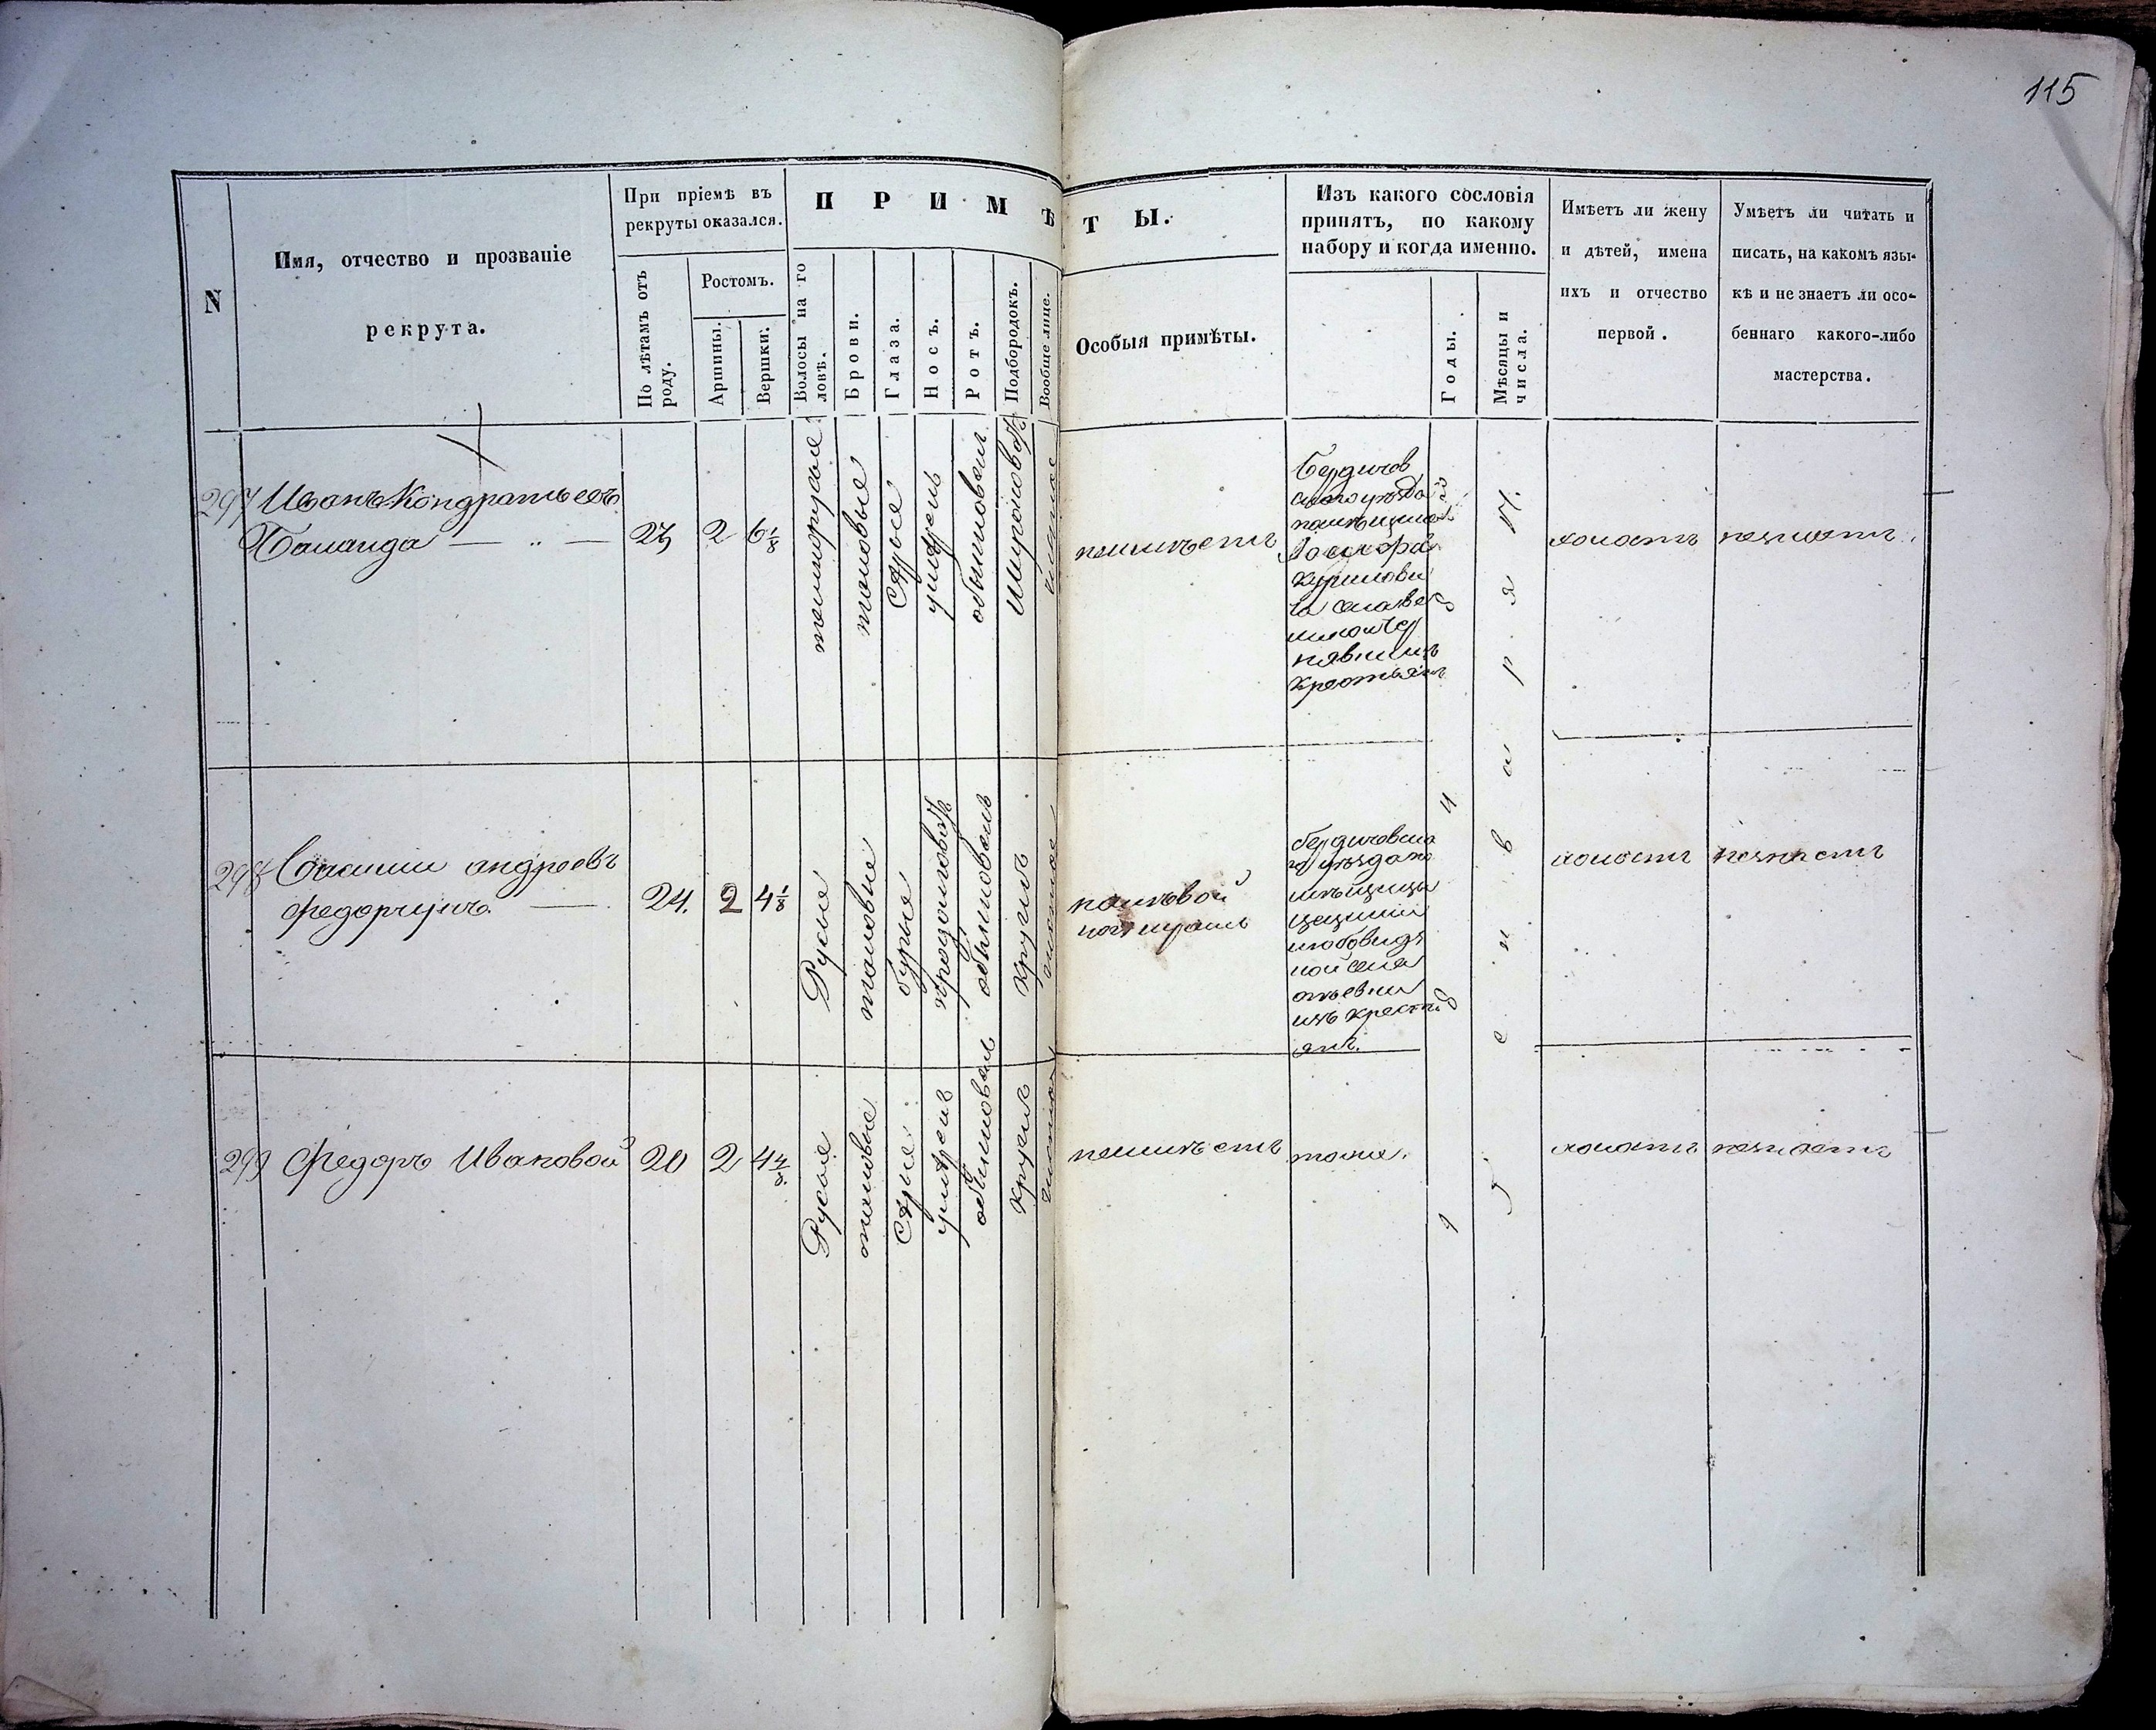 115
N
Имя, отчество и прозваніе
рекрута.
При пріемѣ въ
рекруты оказался.
По лѣтамъ отъ
роду.
Ростомъ.
Аршины.
Вершки.
П Р И М Ѣ Т Ы.
Волосы на го
ловѣ.
Брови.
Глаза.
Носъ.
Ротъ.
Подбородокъ.
Вообще лице.
Особыя примѣты.
Изъ какого сословія
принятъ, по какому
набору и когда именно.
Годы.
Мѣсяцы и
числа.
Имѣетъ ли жену
и дѣтей, имена
ихъ и отчество
первой.
Умѣетъ ли читать и
писать, на какомъ язы-
кѣ и не знаетъ ли осо-
беннаго какого-либо
мастерства.
297
Иванъ Кондратьевъ
Баланда
2 6 1/8
темнорусые
таковые
Сѣрые
умѣрен
обыкновен
широковат
чистое
неимѣетъ
Бердичев
ского уѣзда
помѣщика
крестьян
холостъ
незнаетъ
298
андреевъ
Федорчукъ
24. 2 4 1/8
Русые
таковые
бурые
продолговатъ
обыкновенъ
круглъ
чистое
бердичевска
го уѣзда по
мѣщицы
изъ крестья
янъ.
холостъ
незнаетъ
299
Федоръ Ивановой
20 2 4 4/8
Русые
таковые
Сѣрые
умѣрен
обыкновенъ
круглъ
чистое
неимѣетъ
тоже.
холостъ
незнаетъ
генваря